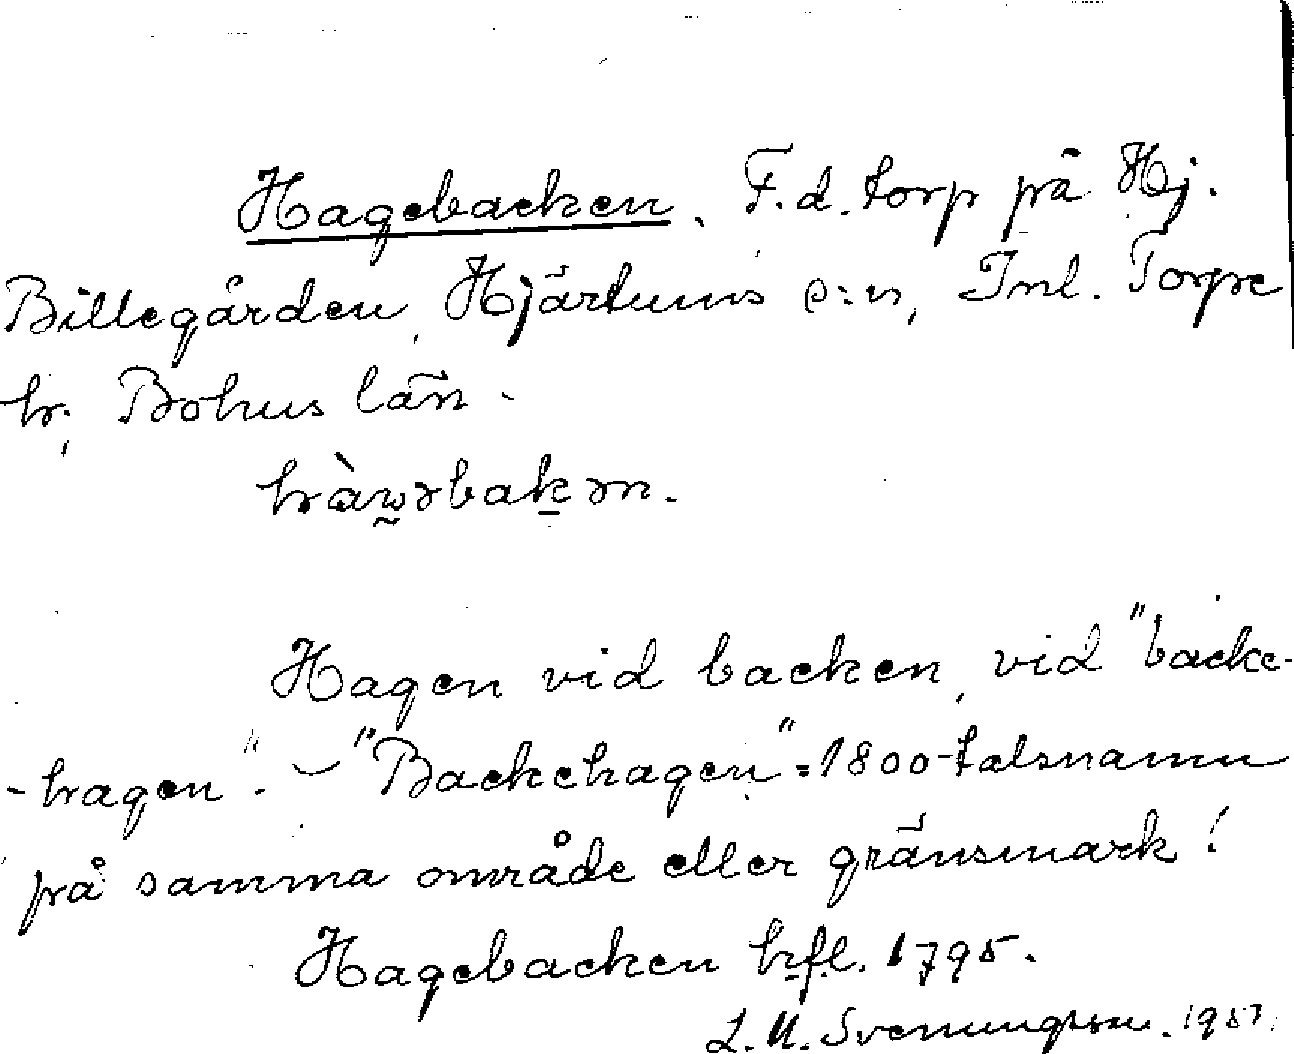 Hagebacken. F.d. torp på Hj.
Billegården, Hjärtums s:n, Inl. Torpe
hr, Bohus län.
hàwəbakən.
Hagen vid backen, vid "backe-
-hagen". – "Backehagen" = 1800-talsnamn
på samma område eller gränsmark!
Hagebacken hfl. 1795.
L. M. Svenungsson. 1957.